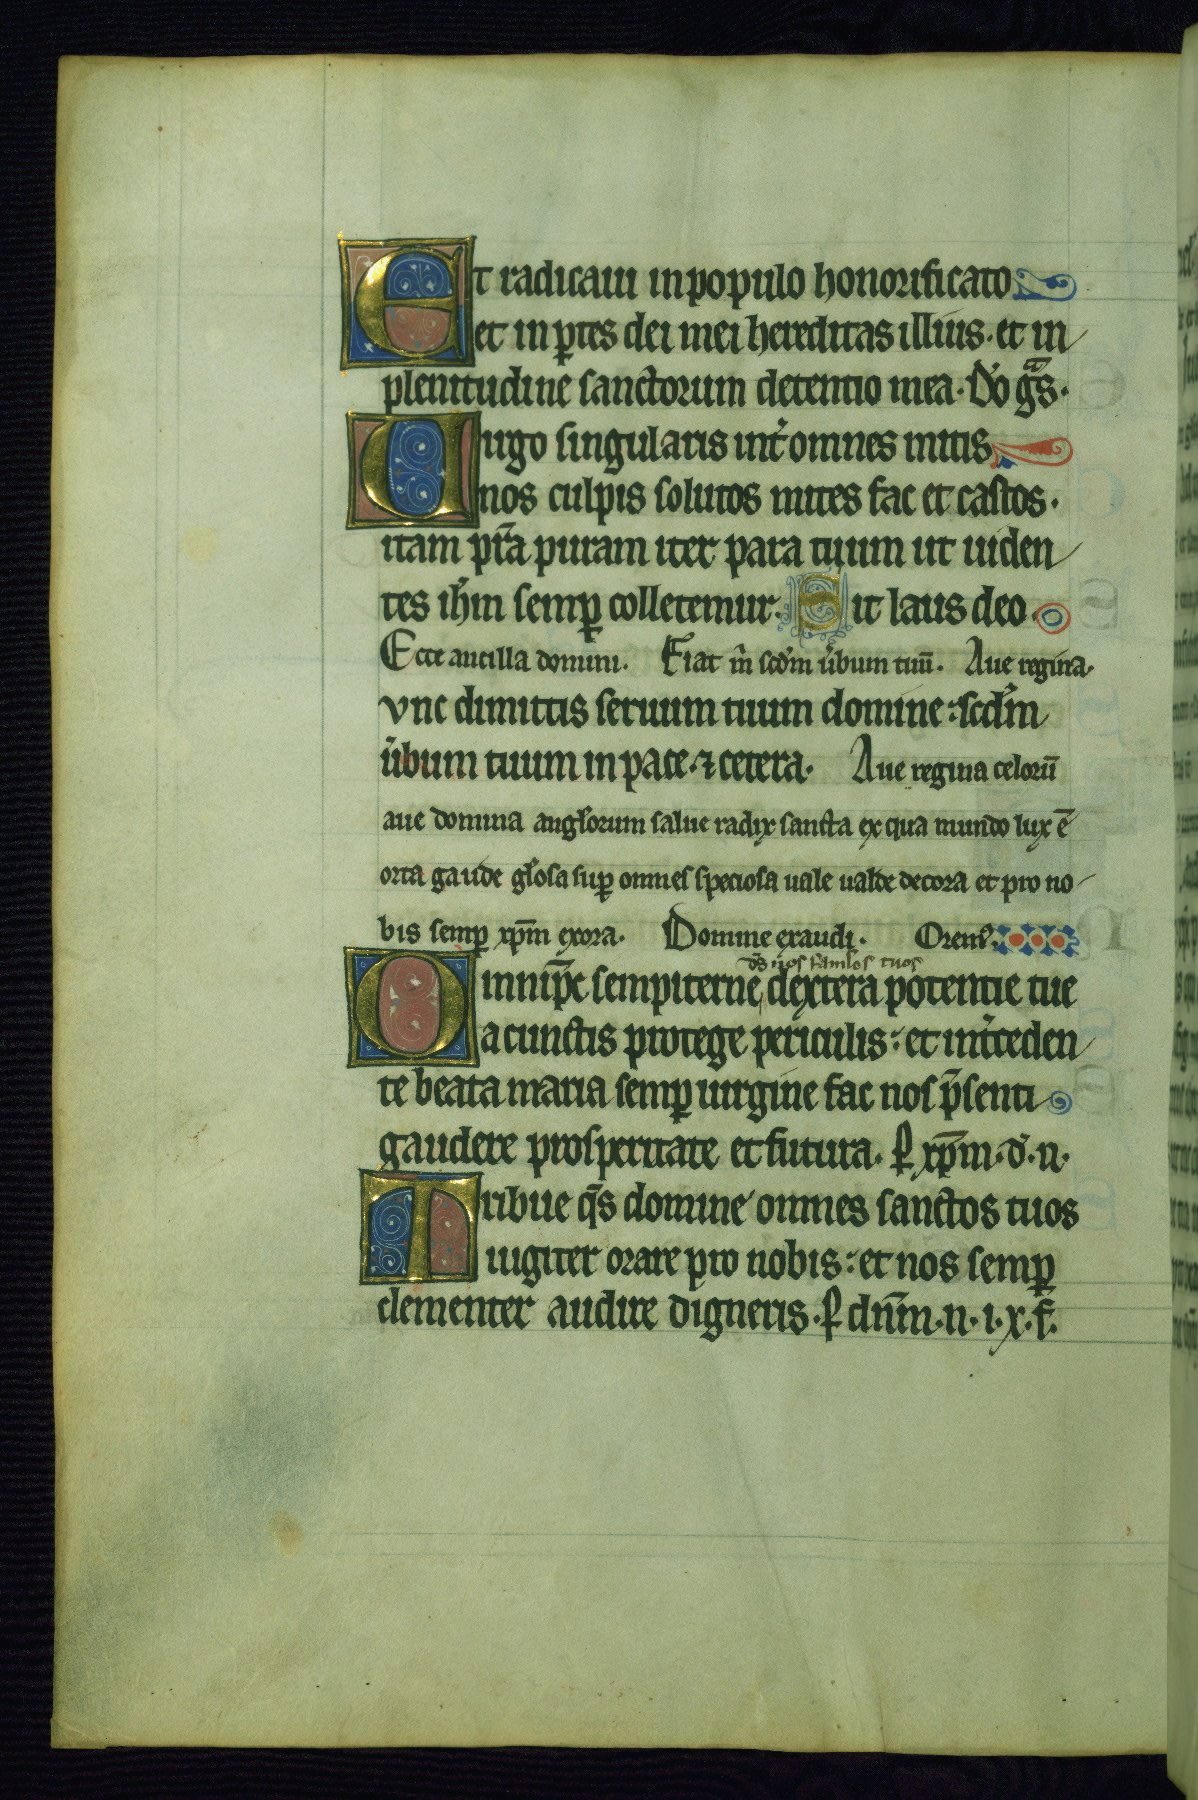 Et radicaui in populo honorificato
et in p̲tes dei mei hereditas illius. et in
plenitudine sanctorum detentio mea. Dō gͣs.
Uirgo singularis int̾ omnes mitis
nos culpis solutos mites fac et castos.
itam p̄ra puram iter para tuum ut uiden
tes ih̄m semp̲ colletemur. Sit laus deo.
Ecce ancilla domini. Fiat m̄ scdm̄ u̾bum tuū. Aue regina.
vnc dimittis seruum tuum domine: scdm̄
u̾bum tuum in pace. ⁊ cetera. Aue regina celorū
aue domina angl̾orum salue radix sancta ex qua mundo lux ē
orta gaude gl̾osa sup̲ omnes speciosa uale ualde decora et pro no
bis semp̲ xp̄m exora. Domine exaudi. Orem᷒.
ds̄ nos famlos tuos
Omnip̄c sempiterne dextera potentie tue
a cunctis protege periculis: et int̾ceden
te beata maria semp̲ uirgine fac nos p̄senti
gaudere prosperitate et futura. ꝑ xp̄m. d. n.
Tribue q̄s domine omnes sanctos tuos
iugiter orare pro nobis: et nos semp̲
clementer audire digneris. ꝑ dn̄m. n. i. x. f.